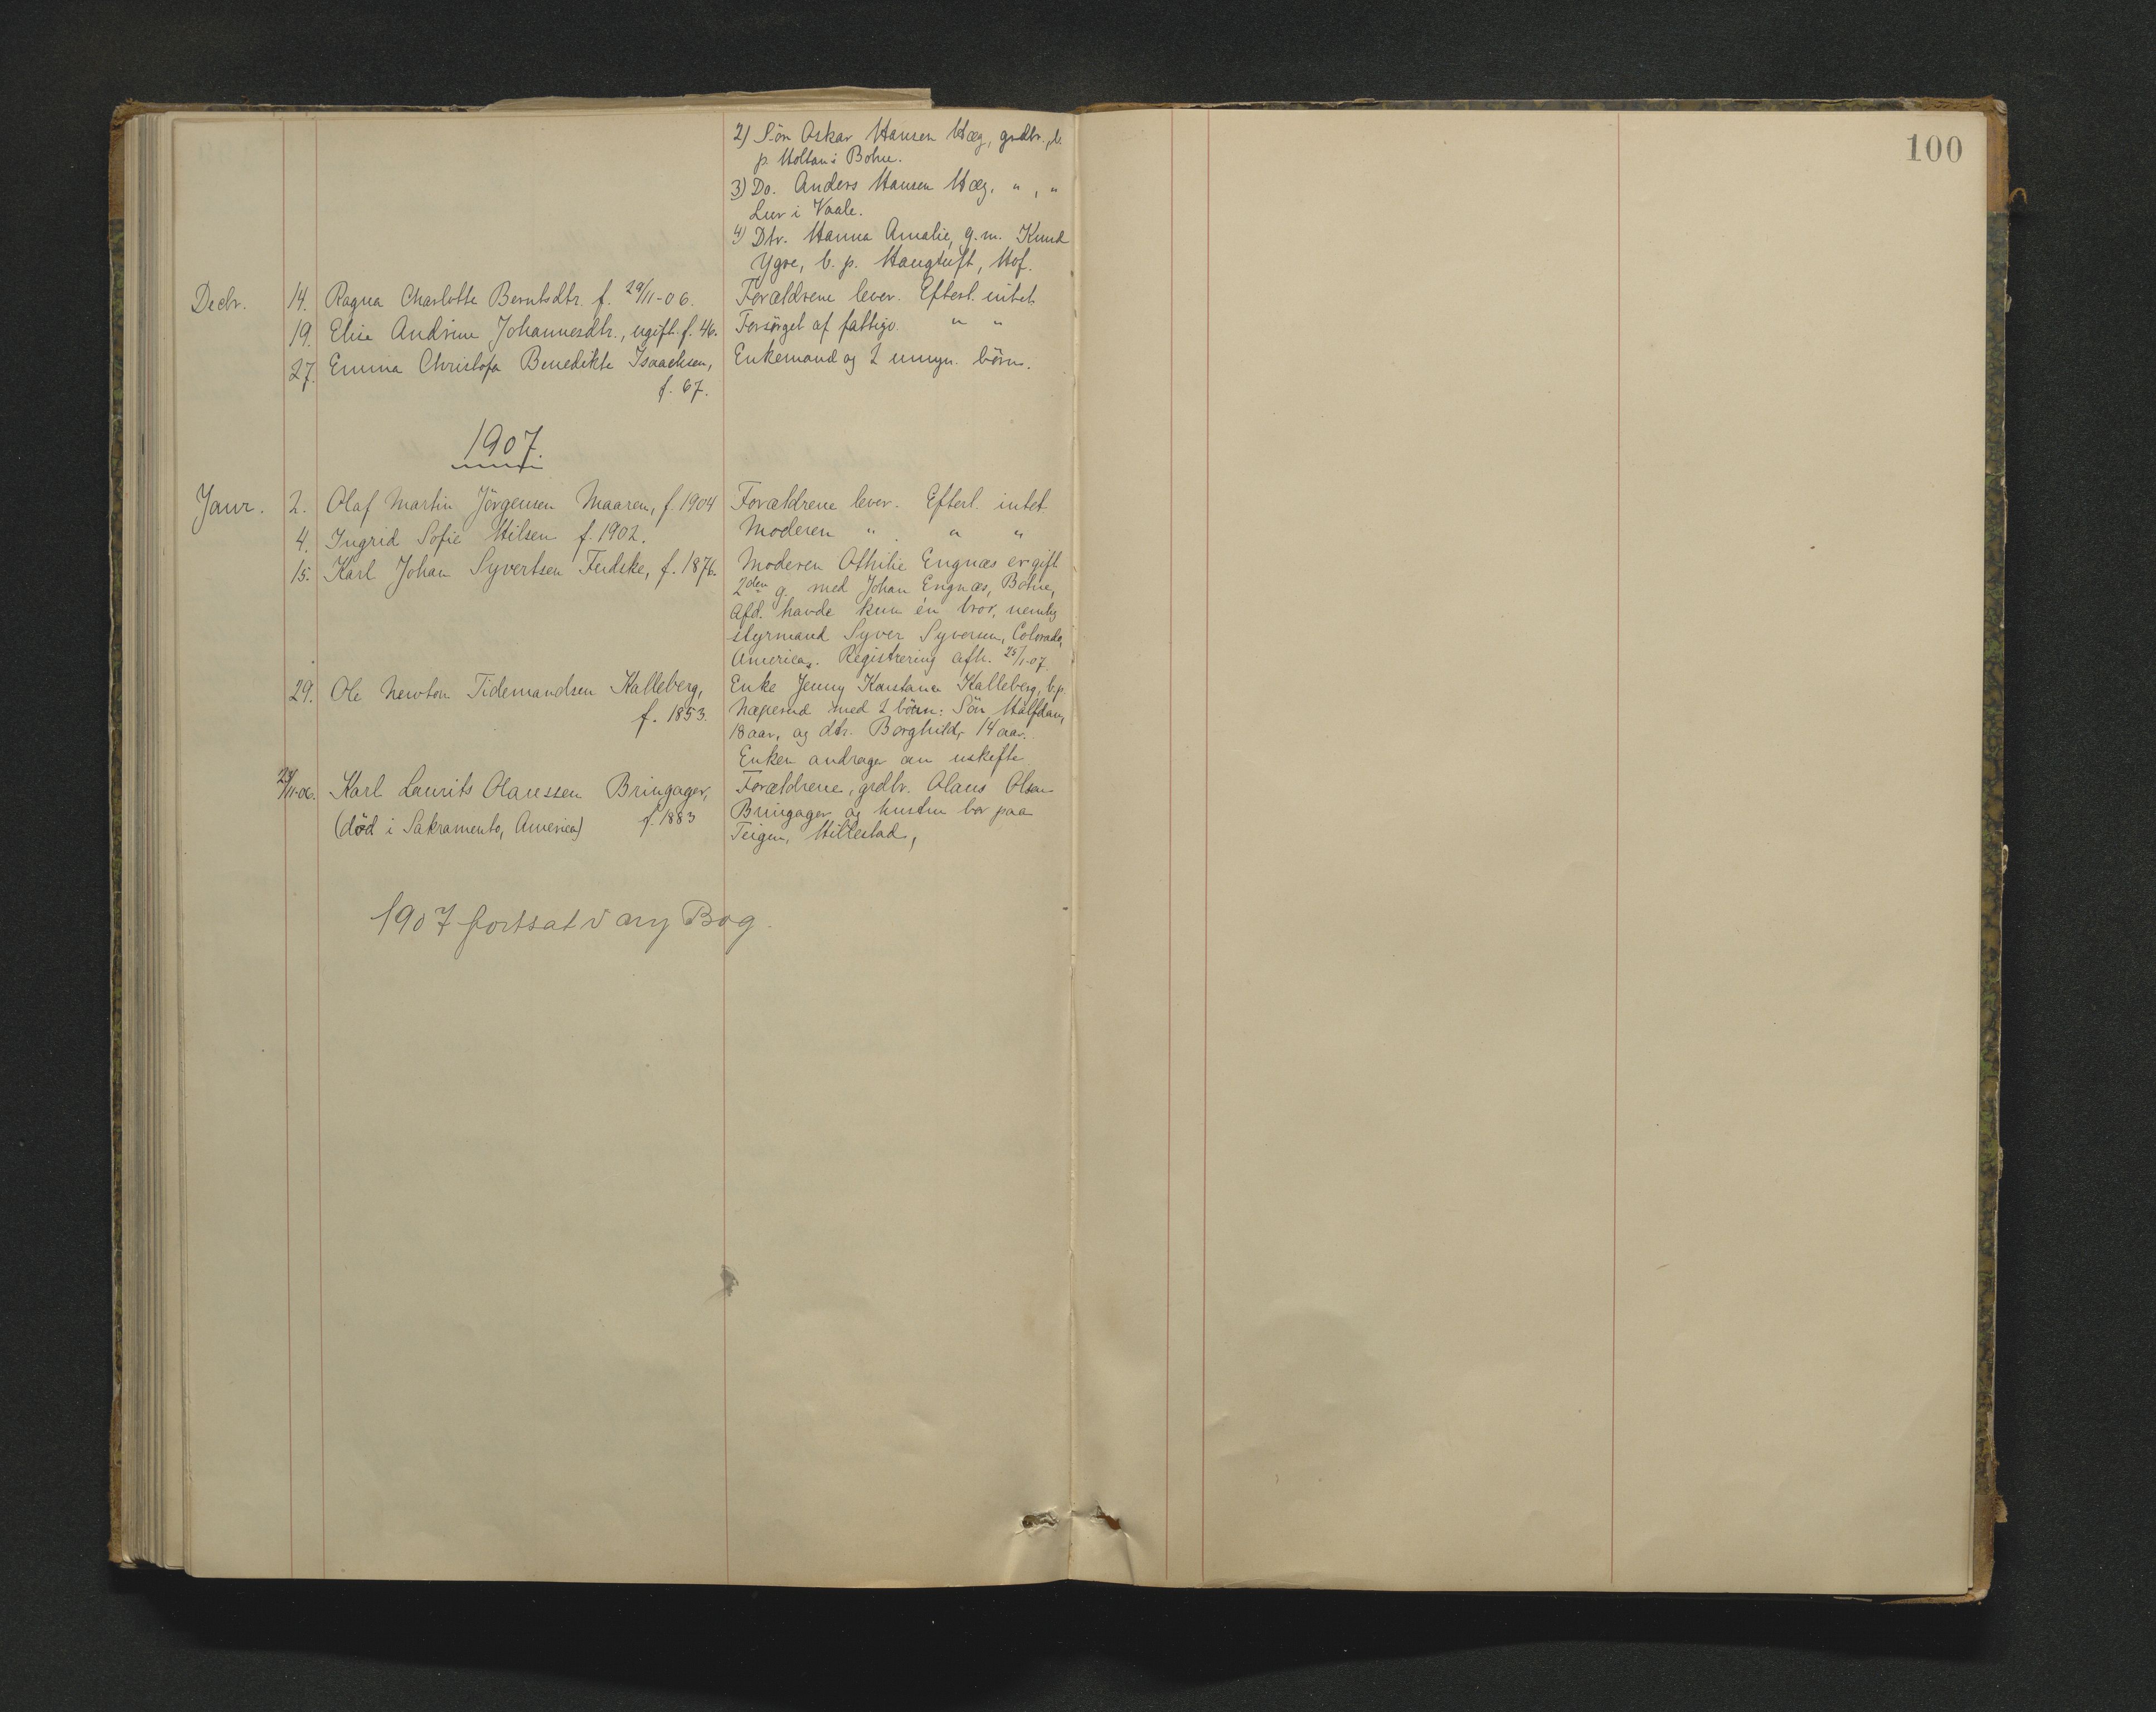 100
2) Sön Oskar Hansen Hæg, grdbr., b.
p. Holtan i Botne.
3) Do. Anders Hansen Hæg, " , "
Lur i Vaale.
4) Dtr. Hanna Amalie, g.m. Knud
Ygre, b. p. Haugtuft, Hof.
Decbr. 14. Ragna Charlotte Berntsdtr. f. 29/11-06. Forældrene lever. Efterl. intet.
19. Elise Andrine Johannesdtr., ugift f. 46. Forsörget af fattigv. " "
27. Emma Christofa Benedikte Isaachsen, Enkemand og 2 umyn. börn.
f. 67.
1907.
Janr. 2. Olaf Martin Jörgensen Maaren, f. 1904 Forældrene lever. Efterl. intet.
4. Ingrid Sofie Hilsen f. 1902. Moderen " . " "
15. Karl Johan Syvertsen Fudske, f. 1876. Moderen Othilie Engnæs er gift
2den g. med Johan Engnæs, Botne,
Afd. havde kun én bror, nemlig
styrmand Syver Syversen, Colorado,
America. Registrering afh. 25/1-07.
29. Ole Newton Tidemandsen Kalleberg, Enke Jenny Konstance Kalleberg, b.p.
f. 1853. Næperud med 2 börn: Sön Halfdan,
18 aar, og dtr. Borghild, 14 aar.
Enken andrager om uskifte
23/11-06. Karl Laurits Olaussen Bringager, Forældrene, grdbr. Olaus Olsen
(död i Sakramento, America) f. 1883 Bringager og hustru bor paa
Teigen, Hillestad,
1907 fortsat i ny Bog.